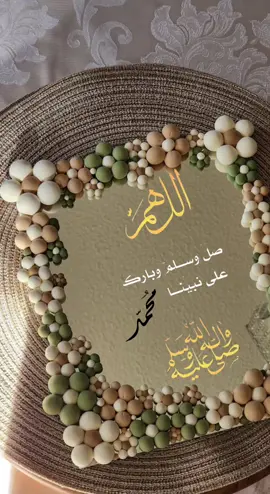 اللهم
صل وسلم وبارك
على نبينا
محمد
صلى الله عليه وآله وسلم